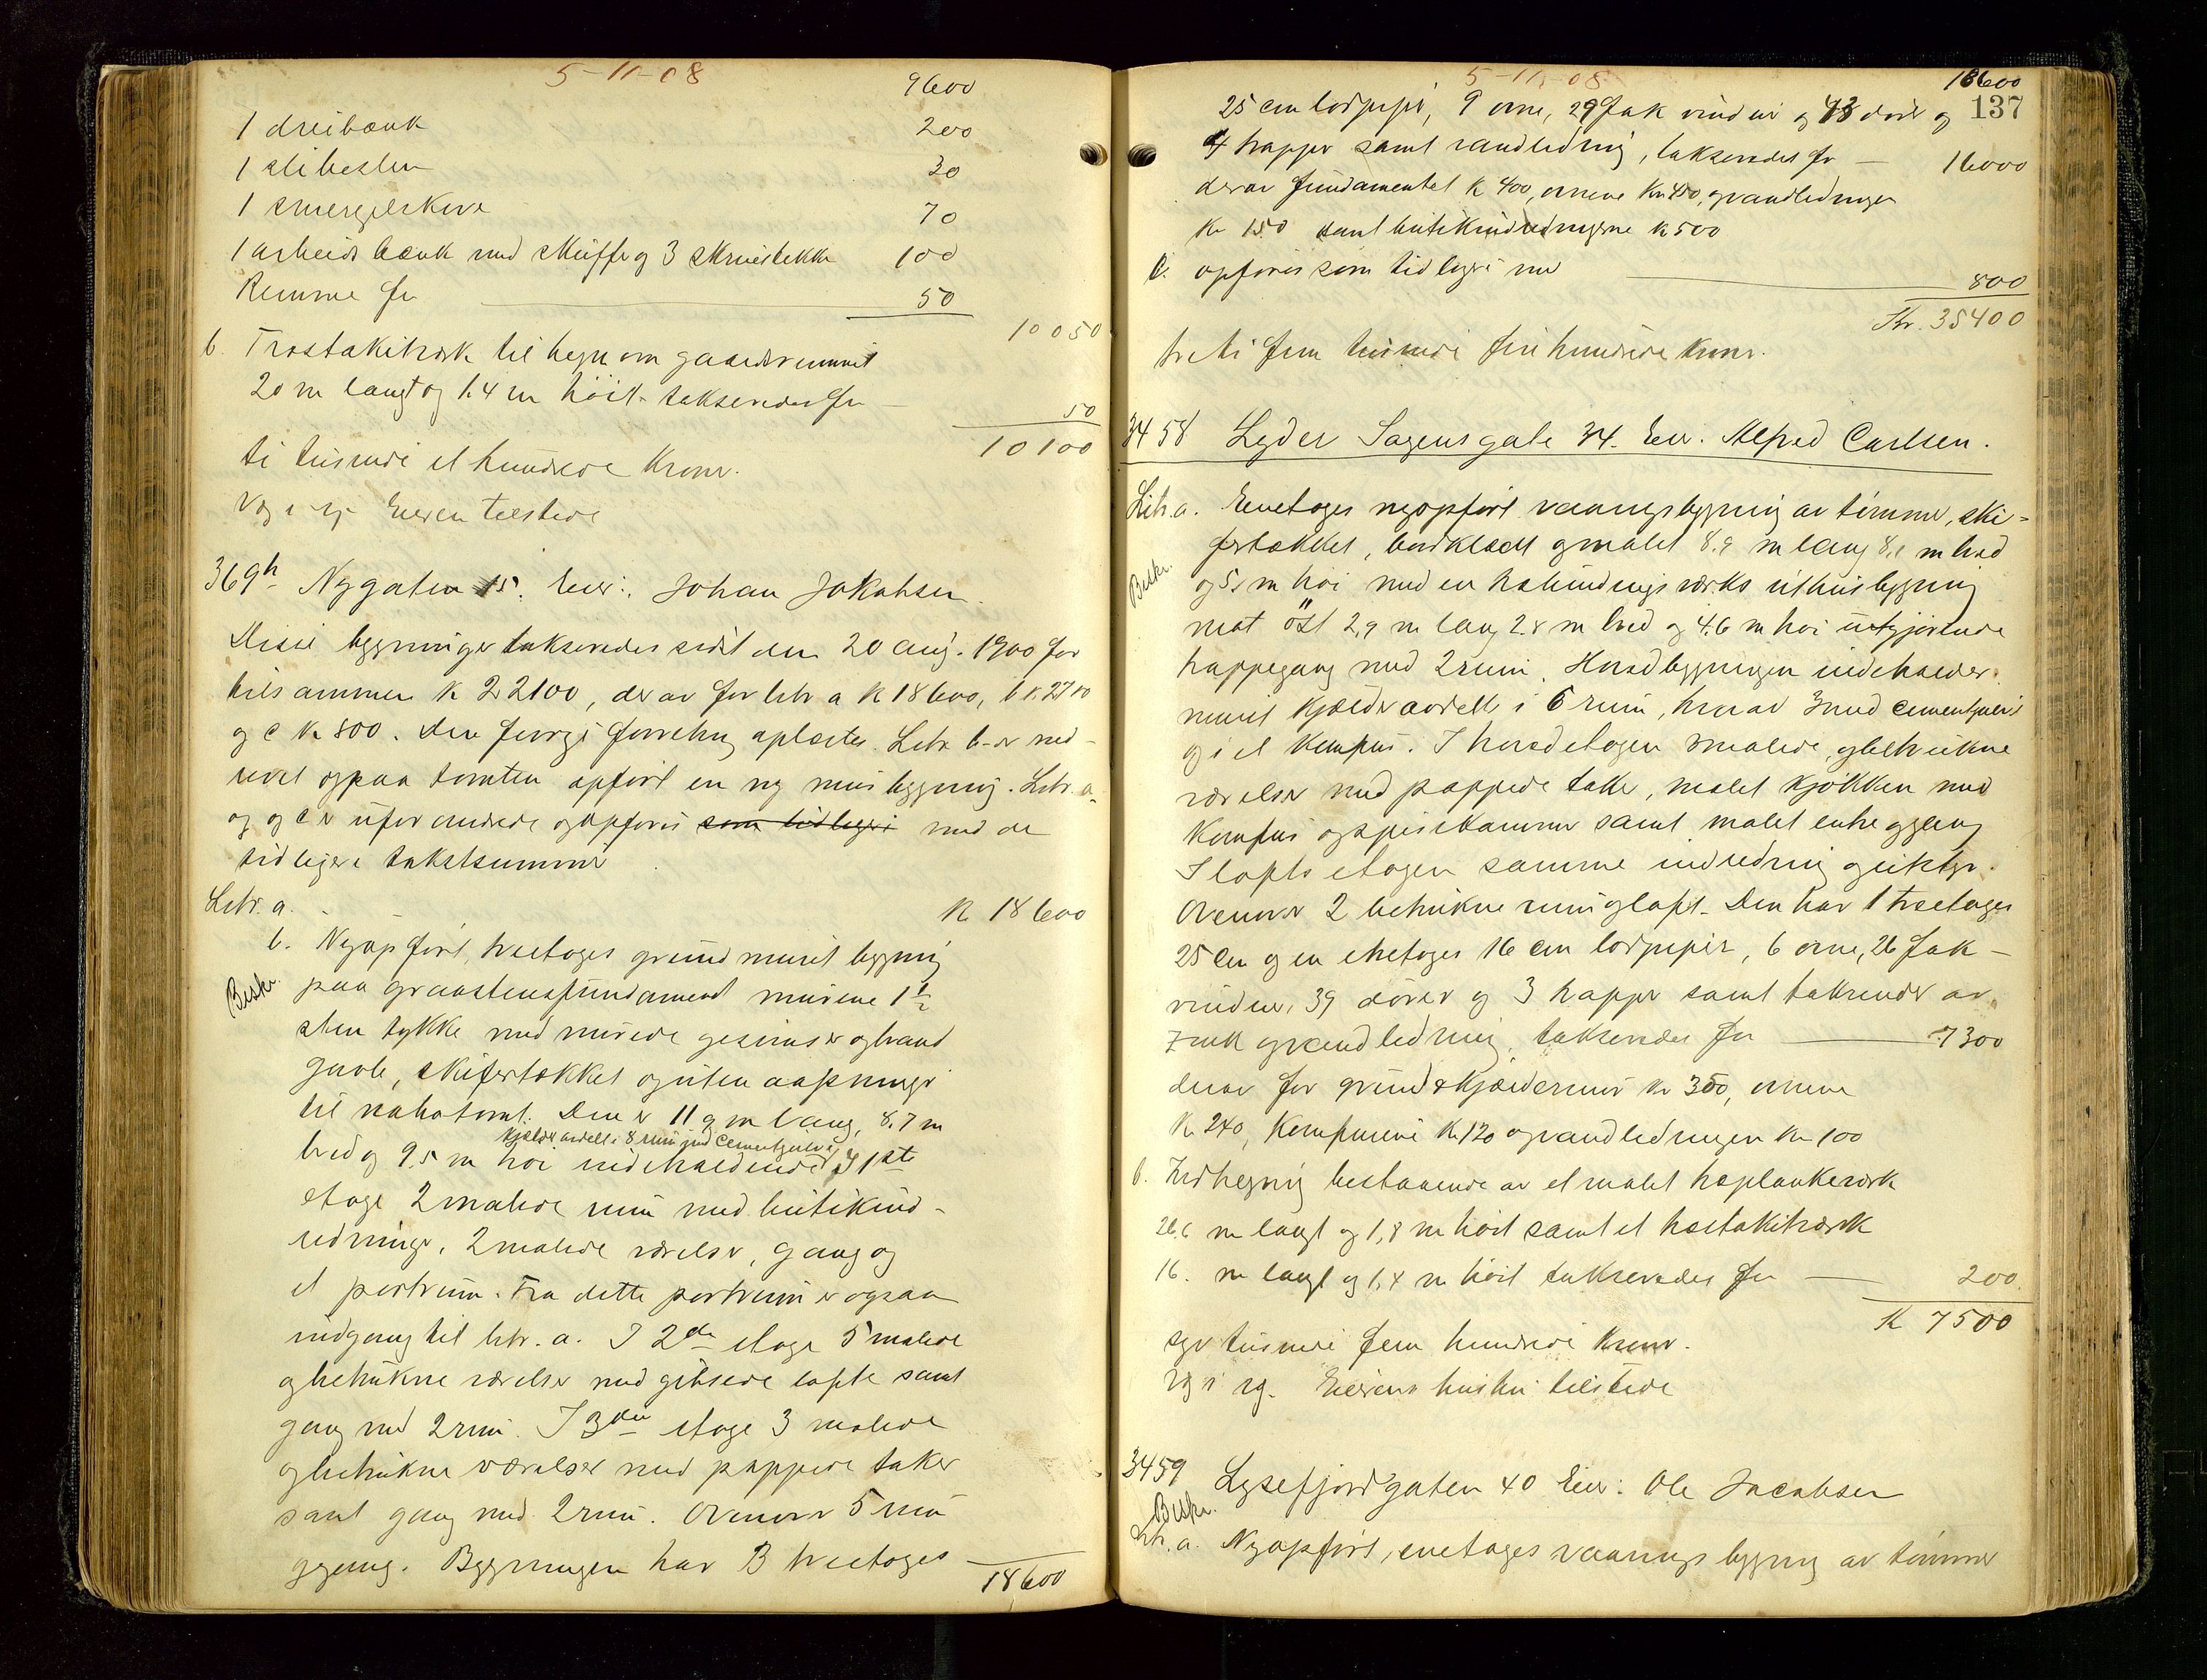 5-11-08
9600
1 dreibænk 200
1 slibesten 30
1 smergelskive 70
1 arbeidsbænk med skuffe og 3 skruestikke 100
Remme for 50
10050
b. Træstakitværk til hegn om gaardsrummet
20 m langt og 1.4 m høit takseredes for 50
10100
ti tusinde et hundrede Kroner.
Eieren tilstede
369h Nygaten 15. Eier: Johan Jakobsen.
Disse bygninger takseredes sidst den 20 aug. 1900 for
tilsammen K 22100, derav for litr a K 18600, b K 2700
og c K 800. Den forrige forretning oplæstes. Litr. b er ned-
revet og paa tomten opført en ny mur bygning. Litr. a
og c er uforandrede og opføres som tidligere med de
tidligere takstsummer
Litr. a. K 18600
b. Nyopført, treetages grundmuret bygning
Beskr. paa graastensfundament murene 1 1/2
sten tykke med murede gesimser og brand
gavle, skifertækket og uten aapninger
til nabotomt. Den er 11,9 m lang, 8.7 m
kjælder avdelt i 8 rum med cementgulv,
bred og 9.5 m høi indeholdende I 1ste
etage 2 malede rum med butikind-
redninger, 2 malede værelser, gang og
et portrum. Fra dette portrum er ogsaa
indgang til litr. a. I 2den etage 5 malede
og betrukne værelser med gibsede lofte samt
gang med 2 rum. I 3die etage 3 malede
og betrukne værelser med pappede taker
samt gang med 2 rum. Ovenover 5 rum
og gang. Bygningen har 3 treetages
18600
5-11-08
18600
137
25 cm lodpiper, 9 ovne, 29 fak vinduer og 43 dører og
4 trapper samt vandledning, takseredes for — 16000
derav fundamentet K 400, ovnene Kr 450, og vandledningen
Kr 150 samt butikindredningerne K 500
c. opføres som tidligere med 800
Kr. 35400
tretti fem tusinde fire hundrede Kroner.
3458 Lyder Sagensgate 34. Eier. Alfred Carlsen.
Litr. a. Eenetages nyopført vaaningsbygning av tømmer, ski-
fertækket, bordklædt og malet 8.9 m lang 8,1 m bred
Beskr. og 5, m høi med en halvbindingsværks uthusbygning
mot öst 2,9 m lang 2.8 m bred og 4.6 m høi utgjørende
trappegang med 2 rum. Hovedbygningen indeholder
muret kjælder avdelt i 6 rum, hvorav 3 med cementgulv
og i et Komfur. I hovedetagen malede, og betrukne
værelser med pappede taker, malet kjøkken med
Komfur og spisekammer samt malet entre og gang
I lofts etagen samme indredning og utstyr.
Ovenover 2 betrukne rum og loft. Den har 1 treetages
25 cm og en etetages 16 cm lodpiper, 6 ovne, 26 fak-
vinduer, 39 dører og 3 trapper samt takrender av
Zink og vandledning, takseredes for — 7300
derav for grund & kjældermur Kr 350, ovnene
K 240, Komfurene K 120 og vandledningen Kr 100
b. Indhegning bestaaende av et malet træplankeværk
26,6 m langt og 1,8 m høit samt et træstakitværk
16. m langt og 1,4 m høit takseredes for — 200.
K 7500
syv tusinde fem hundrede Kroner.
Eierens hustru tilstede
3459 Lysefjordgaten 40 Eier: Ole Jacobsen
Beskr.
Litr. a. Nyopført, enetages vaaningsbygning av tømmer